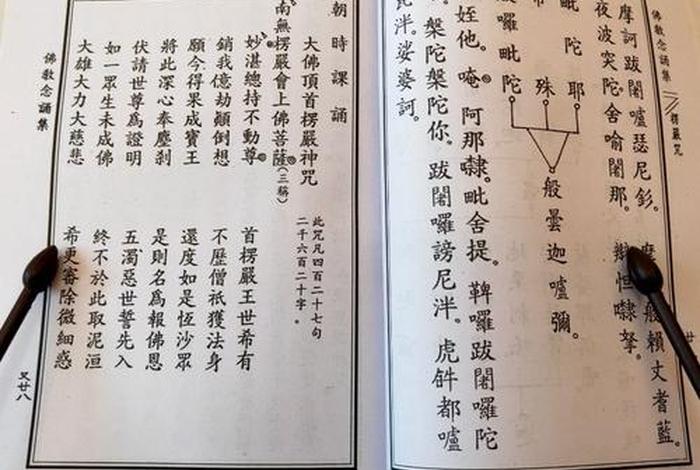 佛教念誦集 楞嚴咒
摩訶跋闍嚧瑟尼釤。 般賴丈耆藍。
夜波突陀。舍喻闍那。 辮怛隸拏。
毗陀耶
殊
囉毗陀
般曇迦嚧彌。
姪他。唵。阿那隸。毗舍提。鞞囉跋闍囉陀
槃陀槃陀你。跋闍囉謗尼泮。虎𤙖都嚧
泮。娑婆訶。
朝時課誦
大佛頂首楞嚴神咒
此咒凡四百二十七句
二千六百二十字。
南無楞嚴會上佛菩薩(三稱)
妙湛總持不動尊 首楞嚴王世希有
銷我億劫顛倒想 不歷僧祇獲法身
願今得果成寶王 還度如是恆沙眾
將此深心奉塵剎 是則名為報佛恩
伏請世尊為證明 五濁惡世誓先入
如一眾生未成佛 終不於此取泥洹
大雄大力大慈悲 希更審除微細惑
佛教念誦集
又廿八